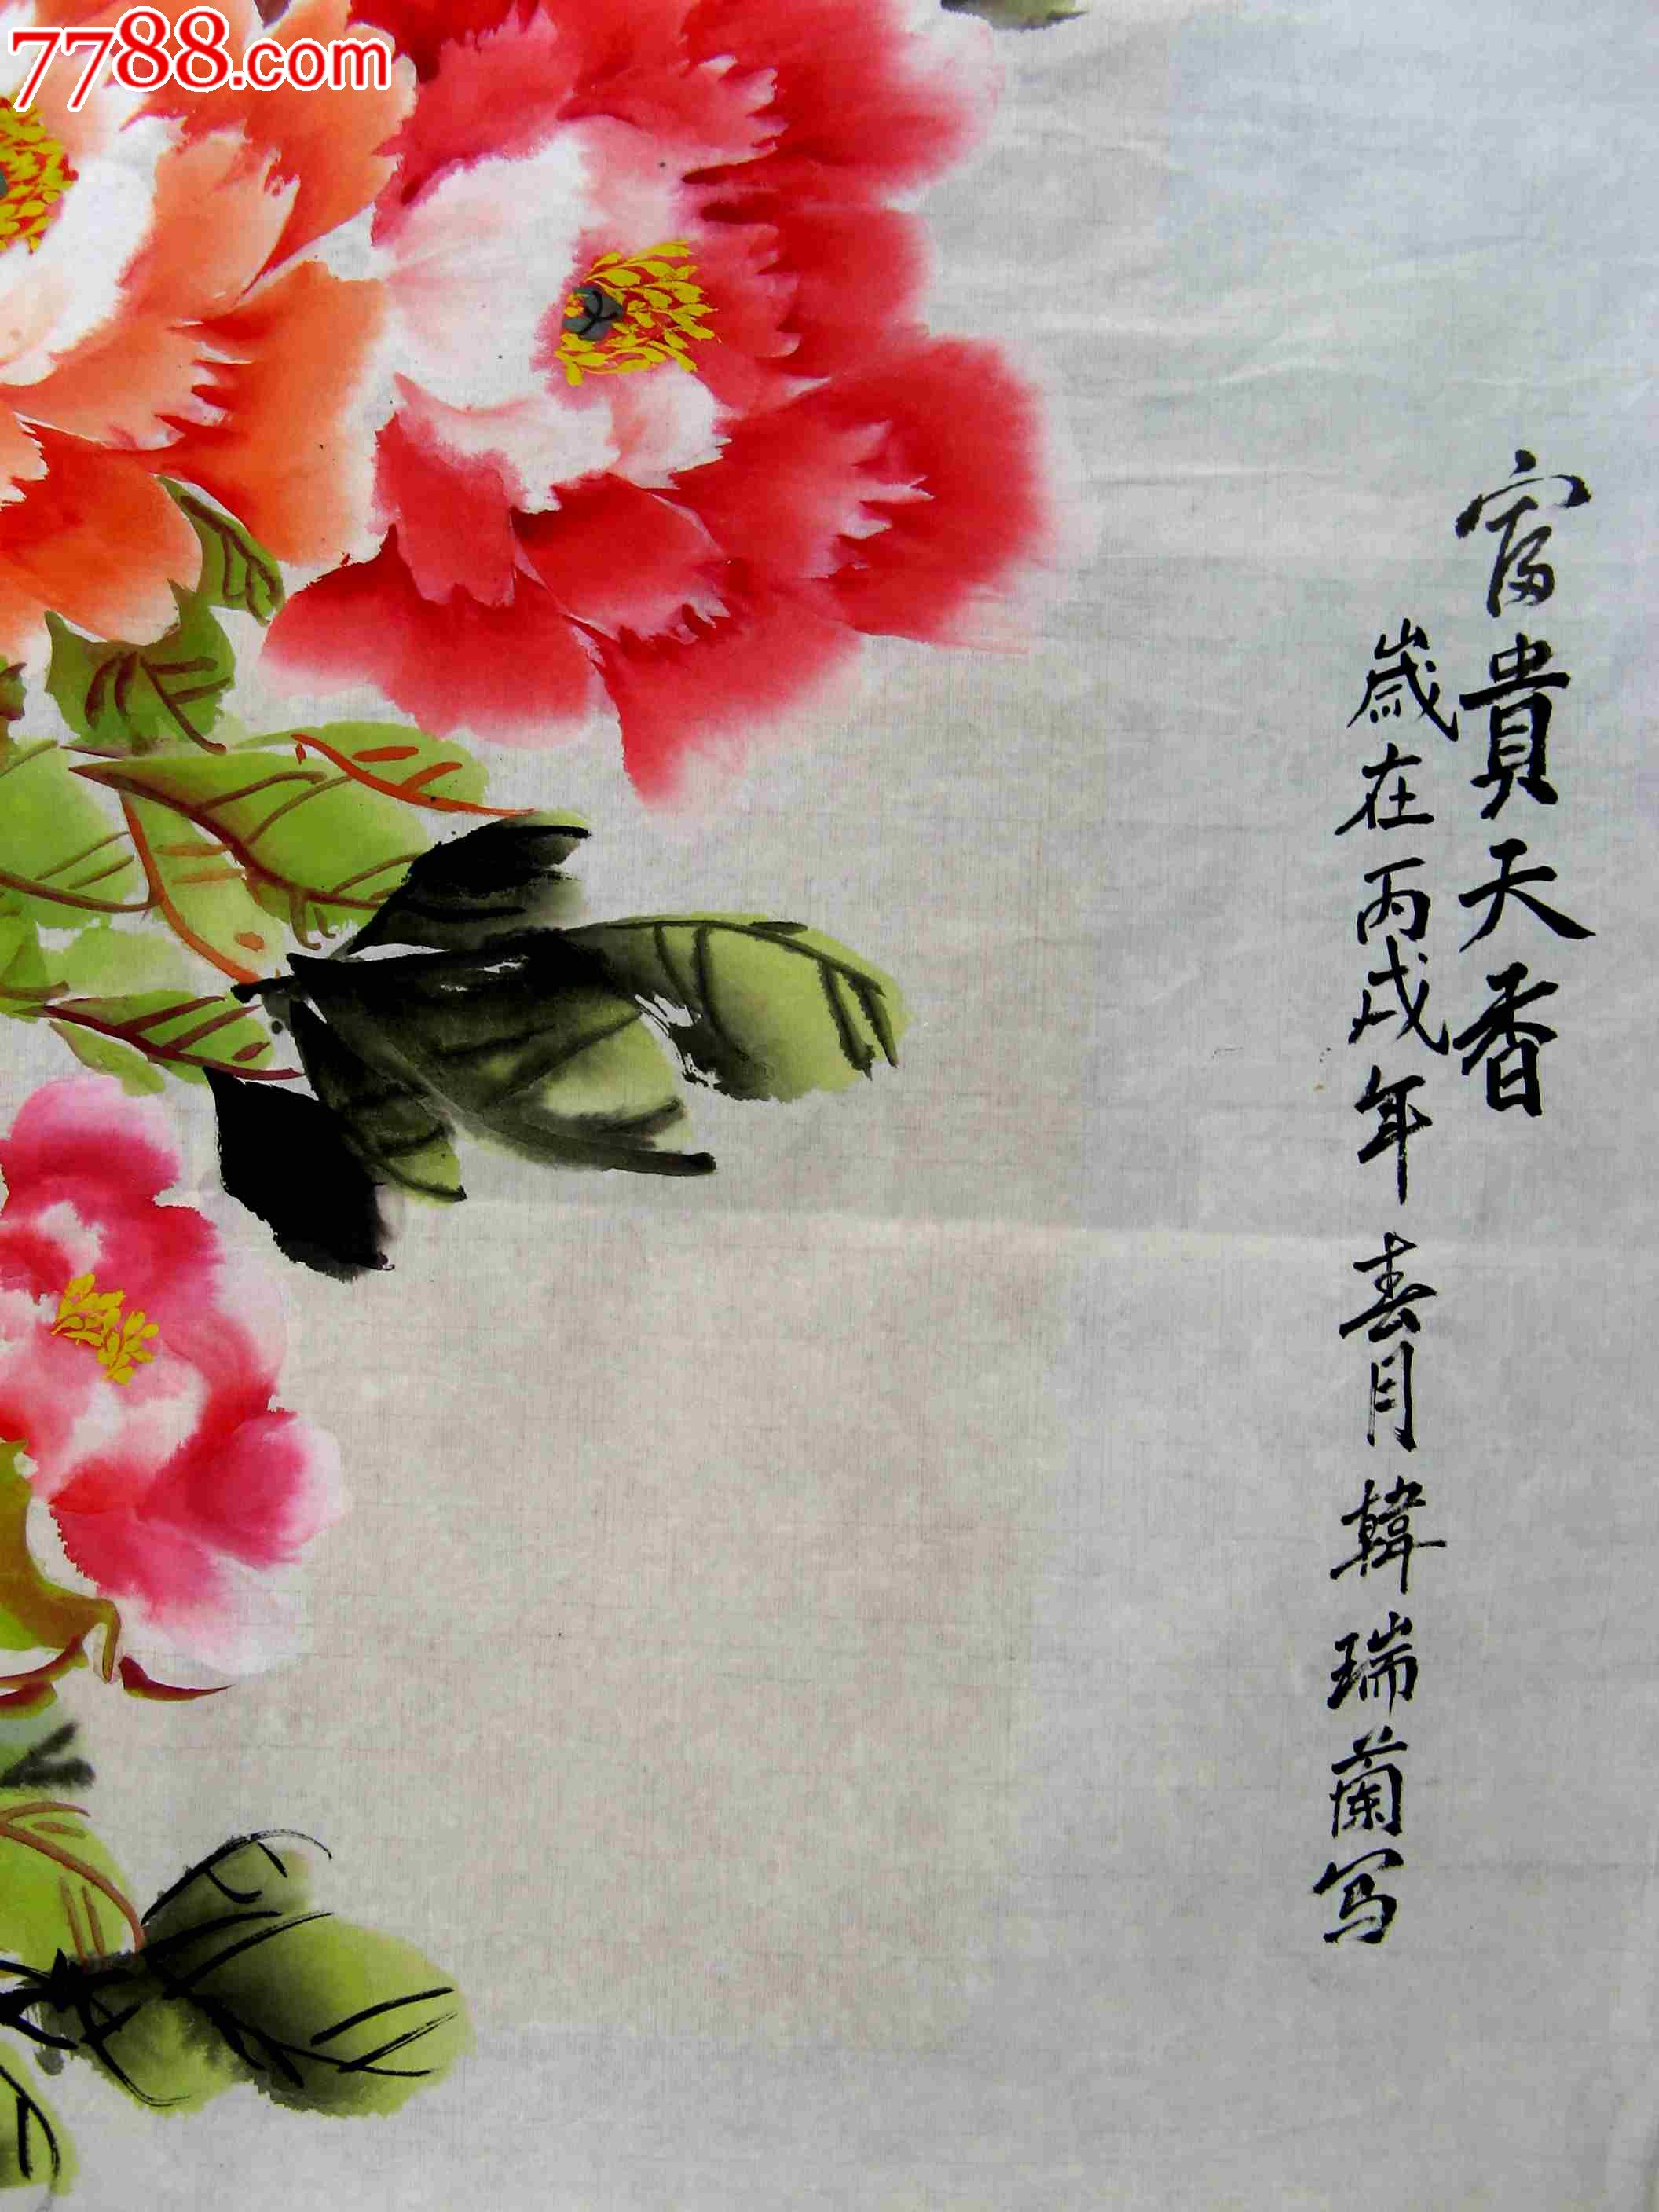 7788.com
富貴天香
歲在丙戌年春月韓瑞蘭写